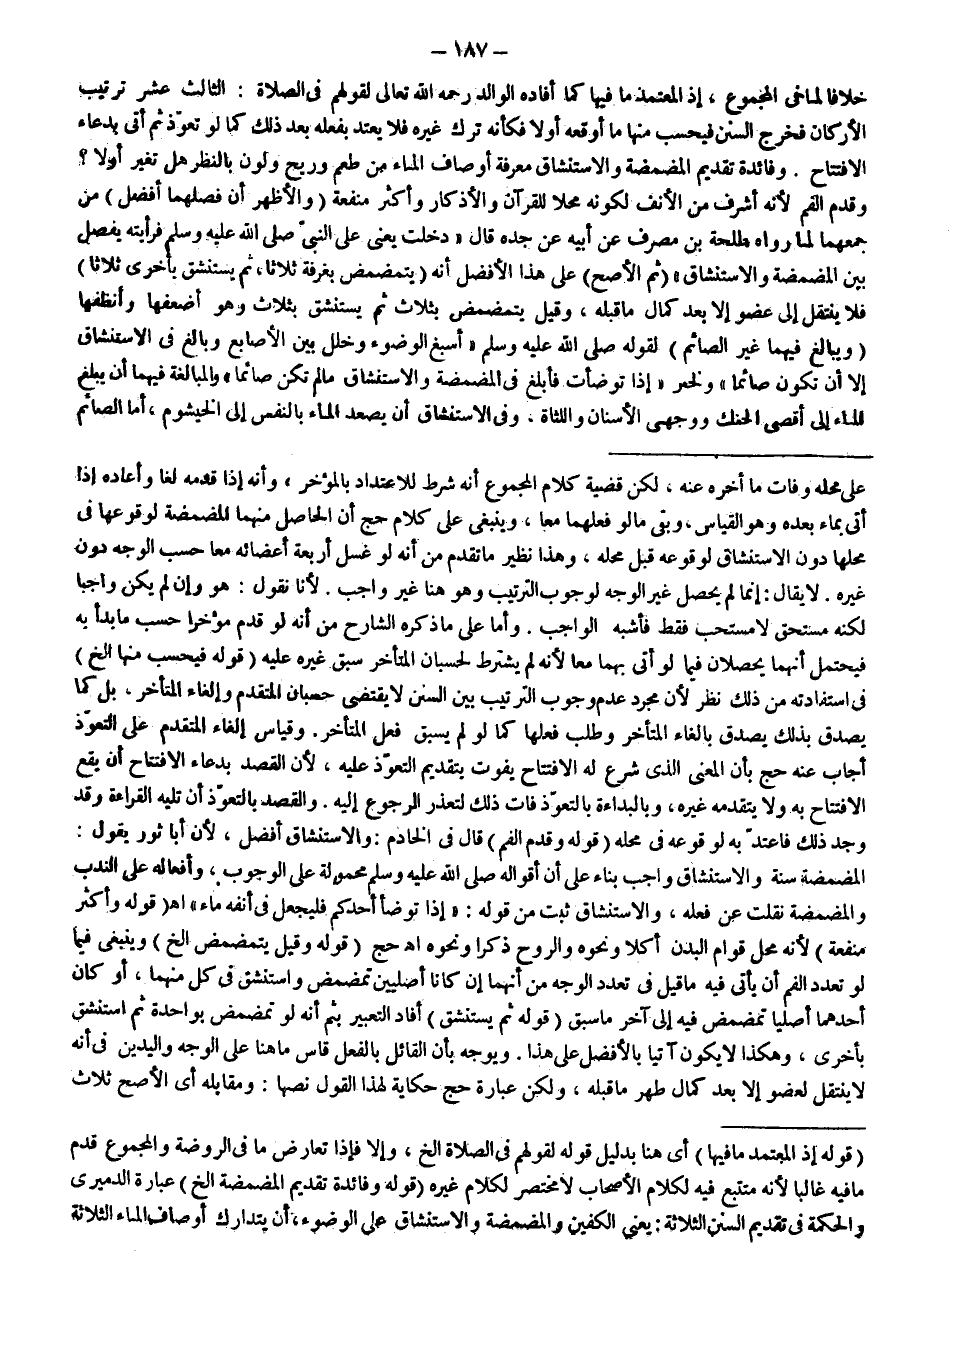 – ١٨٧ –
خلافا لما فى المجموع ، إذ المعتمد ما فيها كما أفاده الوالد رحمه الله تعالى لقولهم فى الصلاة : الثالث عشر ترتيب
الأركان فخرج السنن فيحسب منها ما أوقعه أولا فكأنه ترك غيره فلا يعتد بفعله بعد ذلك كما لو تعوّذ ثم أتى بدعاء
الافتتاح . وفائدة تقديم المضمضة والاستنشاق معرفة أوصاف الماء من طعم وريح ولون بالنظر هل تغير أولا ؟
وقدم الفم لأنه أشرف من الأنف لكونه محلا للقرآن والأذكار وأكثر منفعة ( والأظهر أن فصلهما أفضل ) من
جمعهما لما رواه طلحة بن مصرف عن أبيه عن جده قال « دخلت يعنى على النبىّ صلى الله عليه وسلم فرأيته يفصل
بين المضمضة والاستنشاق » ( ثم الأصح ) على هذا الأفضل أنه ( يتمضمض بغرفة ثلاثا ، ثم يستنشق بأخرى ثلاثا )
فلا ينتقل إلى عضو إلا بعد كمال ماقبله ، وقيل يتمضمض بثلاث ثم يستنشق بثلاث وهو أضعفها وأنظفها
( ويبالغ فيهما غير الصائم ) لقوله صلى الله عليه وسلم « أسبغ الوضوء وخلل بين الأصابع وبالغ فى الاستنشاق
إلا أن تكون صائما » ولخبر « إذا توضأت فأبلغ فى المضمضة والاستنشاق مالم تكن صائما » والمبالغة فيهما أن يبلغ
الماء إلى أقصى الحنك ووجهى الأسنان واللثاة . وفى الاستنشاق أن يصعد الماء بالنفس إلى الخيشوم ، أما الصائم
على محله وفات ما أخره عنه ، لكن قضية كلام المجموع أنه شرط للاعتداد بالمؤخر ، وأنه إذا قدمه لغا وأعاده إذا
أتى بماء بعده وهو القياس ، وبقى مالو فعلهما معا ، وينبغى على كلام حج أن الحاصل منهما المضمضة لوقوعها فى
محلها دون الاستنشاق لوقوعه قبل محله ، وهذا نظير ماتقدم من أنه لو غسل أربعة أعضائه معا حسب الوجه دون
غيره . لايقال : إنما لم يحصل غير الوجه لوجوب الترتيب وهو هنا غير واجب . لأنا نقول : هو وإن لم يكن واجبا
لكنه مستحق لامستحب فقط فأشبه الواجب . وأما على ماذكره الشارح من أنه لو قدم مؤخرا حسب مابدأ به
فيحتمل أنهما يحصلان فيما لو أتى بهما معا لأنه لم يشترط لحسبان المتأخر سبق غيره عليه ( قوله فيحسب منها الخ )
فى استفادته من ذلك نظر لأن مجرد عدم وجوب الترتيب بين السنن لايقتضى حسبان المتقدم وإلغاء المتأخر ، بل كما
يصدق بذلك يصدق بالغاء المتأخر وطلب فعلها كما لو لم يسبق فعل المتأخر . وقياس إلغاء المتقدم على التعوّذ
أجاب عنه حج بأن المعنى الذى شرع له الافتتاح يفوت بتقديم التعوّذ عليه ، لأن القصد بدعاء الافتتاح أن يقع
الافتتاح به ولا يتقدمه غيره ، وبالبداءة بالتعوّذ فات ذلك لتعذر الرجوع إليه . والقصد بالتعوّذ أن تليه القراءة وقد
وجد ذلك فاعتدّ به لوقوعه فى محله ( قوله وقدم الفم ) قال فى الخادم : والاستنشاق أفضل ، لأن أبا ثور يقول :
المضمضة سنة والاستنشاق واجب بناء على أن أقواله صلى الله عليه وسلم محمولة على الوجوب ، وأفعاله على الندب
والمضمضة نقلت عن فعله ، والاستنشاق ثبت من قوله : « إذا توضأ أحدكم فليجعل فى أنفه ماء » اه ( قوله وأكثر
منفعة ) لأنه محل قوام البدن أكلا ونحوه والروح ذكرا ونحوه اه حج ( قوله وقيل يتمضمض الخ ) وينبغى فيما
لو تعدد الفم أن يأتى فيه ماقيل فى تعدد الوجه من أنهما إن كانا أصليين تمضمض واستنشق فى كل منهما ، أو كان
أحدهما أصليا تمضمض فيه إلى آخر ماسبق ( قوله ثم يستنشق ) أفاد التعبير بثم أنه لو تمضمض بواحدة ثم استنشق
بأخرى ، وهكذا لايكون آتيا بالأفضل على هذا . ويوجه بأن القائل بالفعل قاس ماهنا على الوجه واليدين فى أنه
لاينتقل لعضو إلا بعد كمال طهر ماقبله ، ولكن عبارة حج حكاية لهذا القول نصها : ومقابله أى الأصح ثلاث
( قوله إذ المعتمد مافيها ) أى هنا بدليل قوله لقولهم فى الصلاة الخ ، وإلا فإذا تعارض ما فى الروضة والمجموع قدم
مافيه غالبا لأنه متتبع فيه لكلام الأصحاب لامختصر لكلام غيره ( قوله وفائدة تقديم المضمضة الخ ) عبارة الدميرى
والحكمة فى تقديم السنن الثلاثة : يعنى الكفين والمضمضة والاستنشاق على الوضوء ، أن يتدارك أوصاف الماء الثلاثة